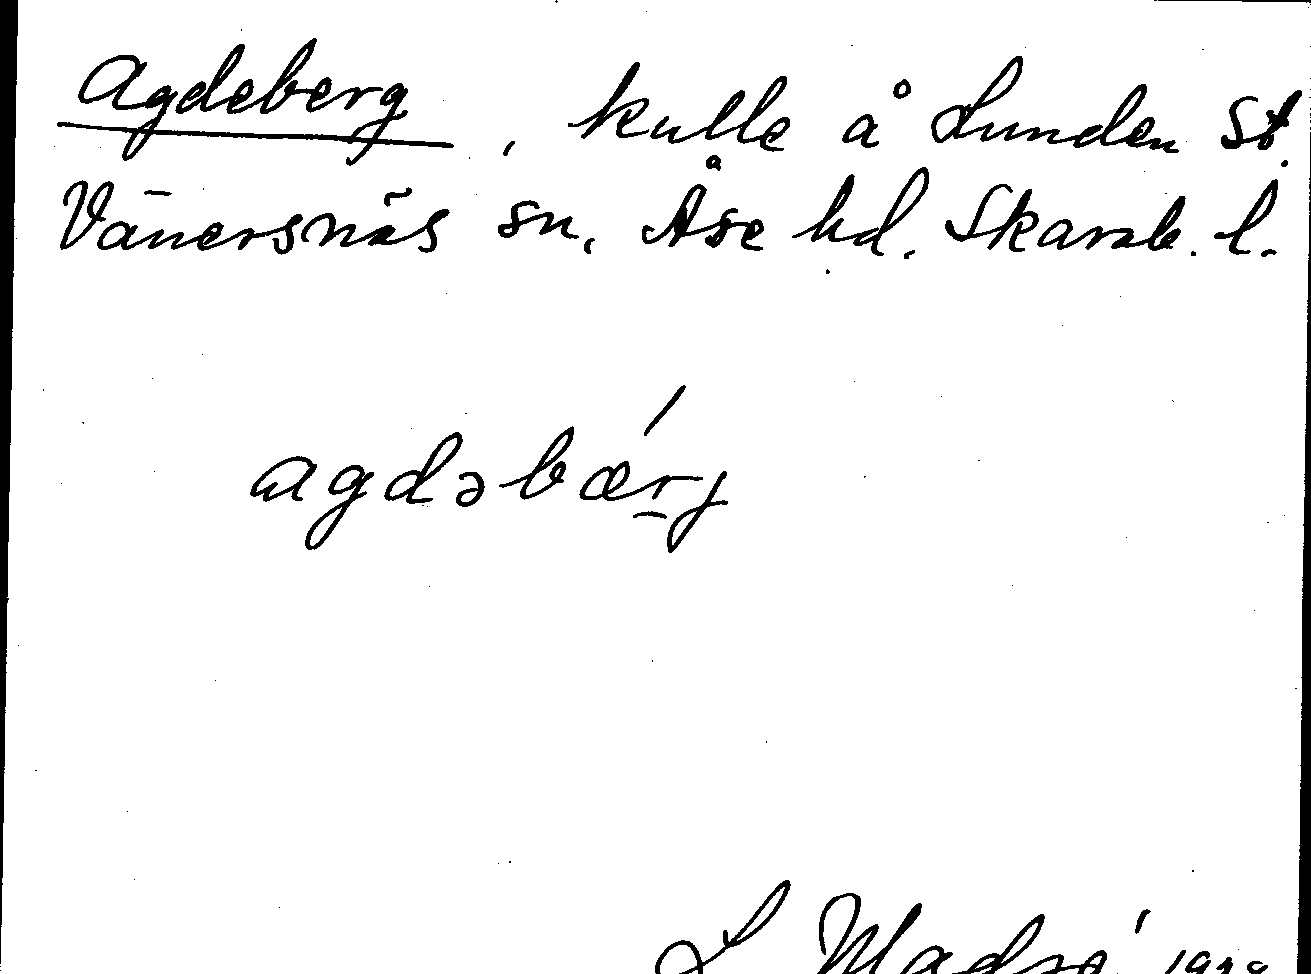 Agdeberg, kulle å Lunden St.
Vänersnäs sn, Åse hd. Skarab. l.
agdəbærj
L Madsé